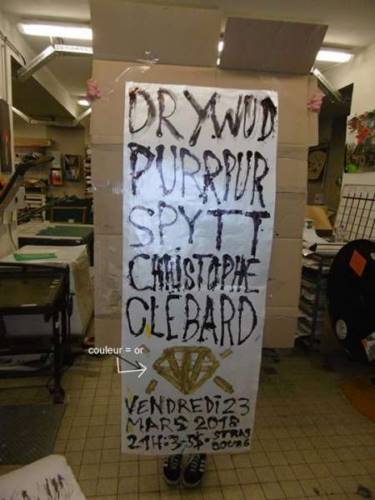 DRYWUD
PURRPUR
SPYTT
CHRISTOPHE
CLEBARD
couleur = or
VENDREDI 23
MARS 2018
21H
STRAS
BOURG